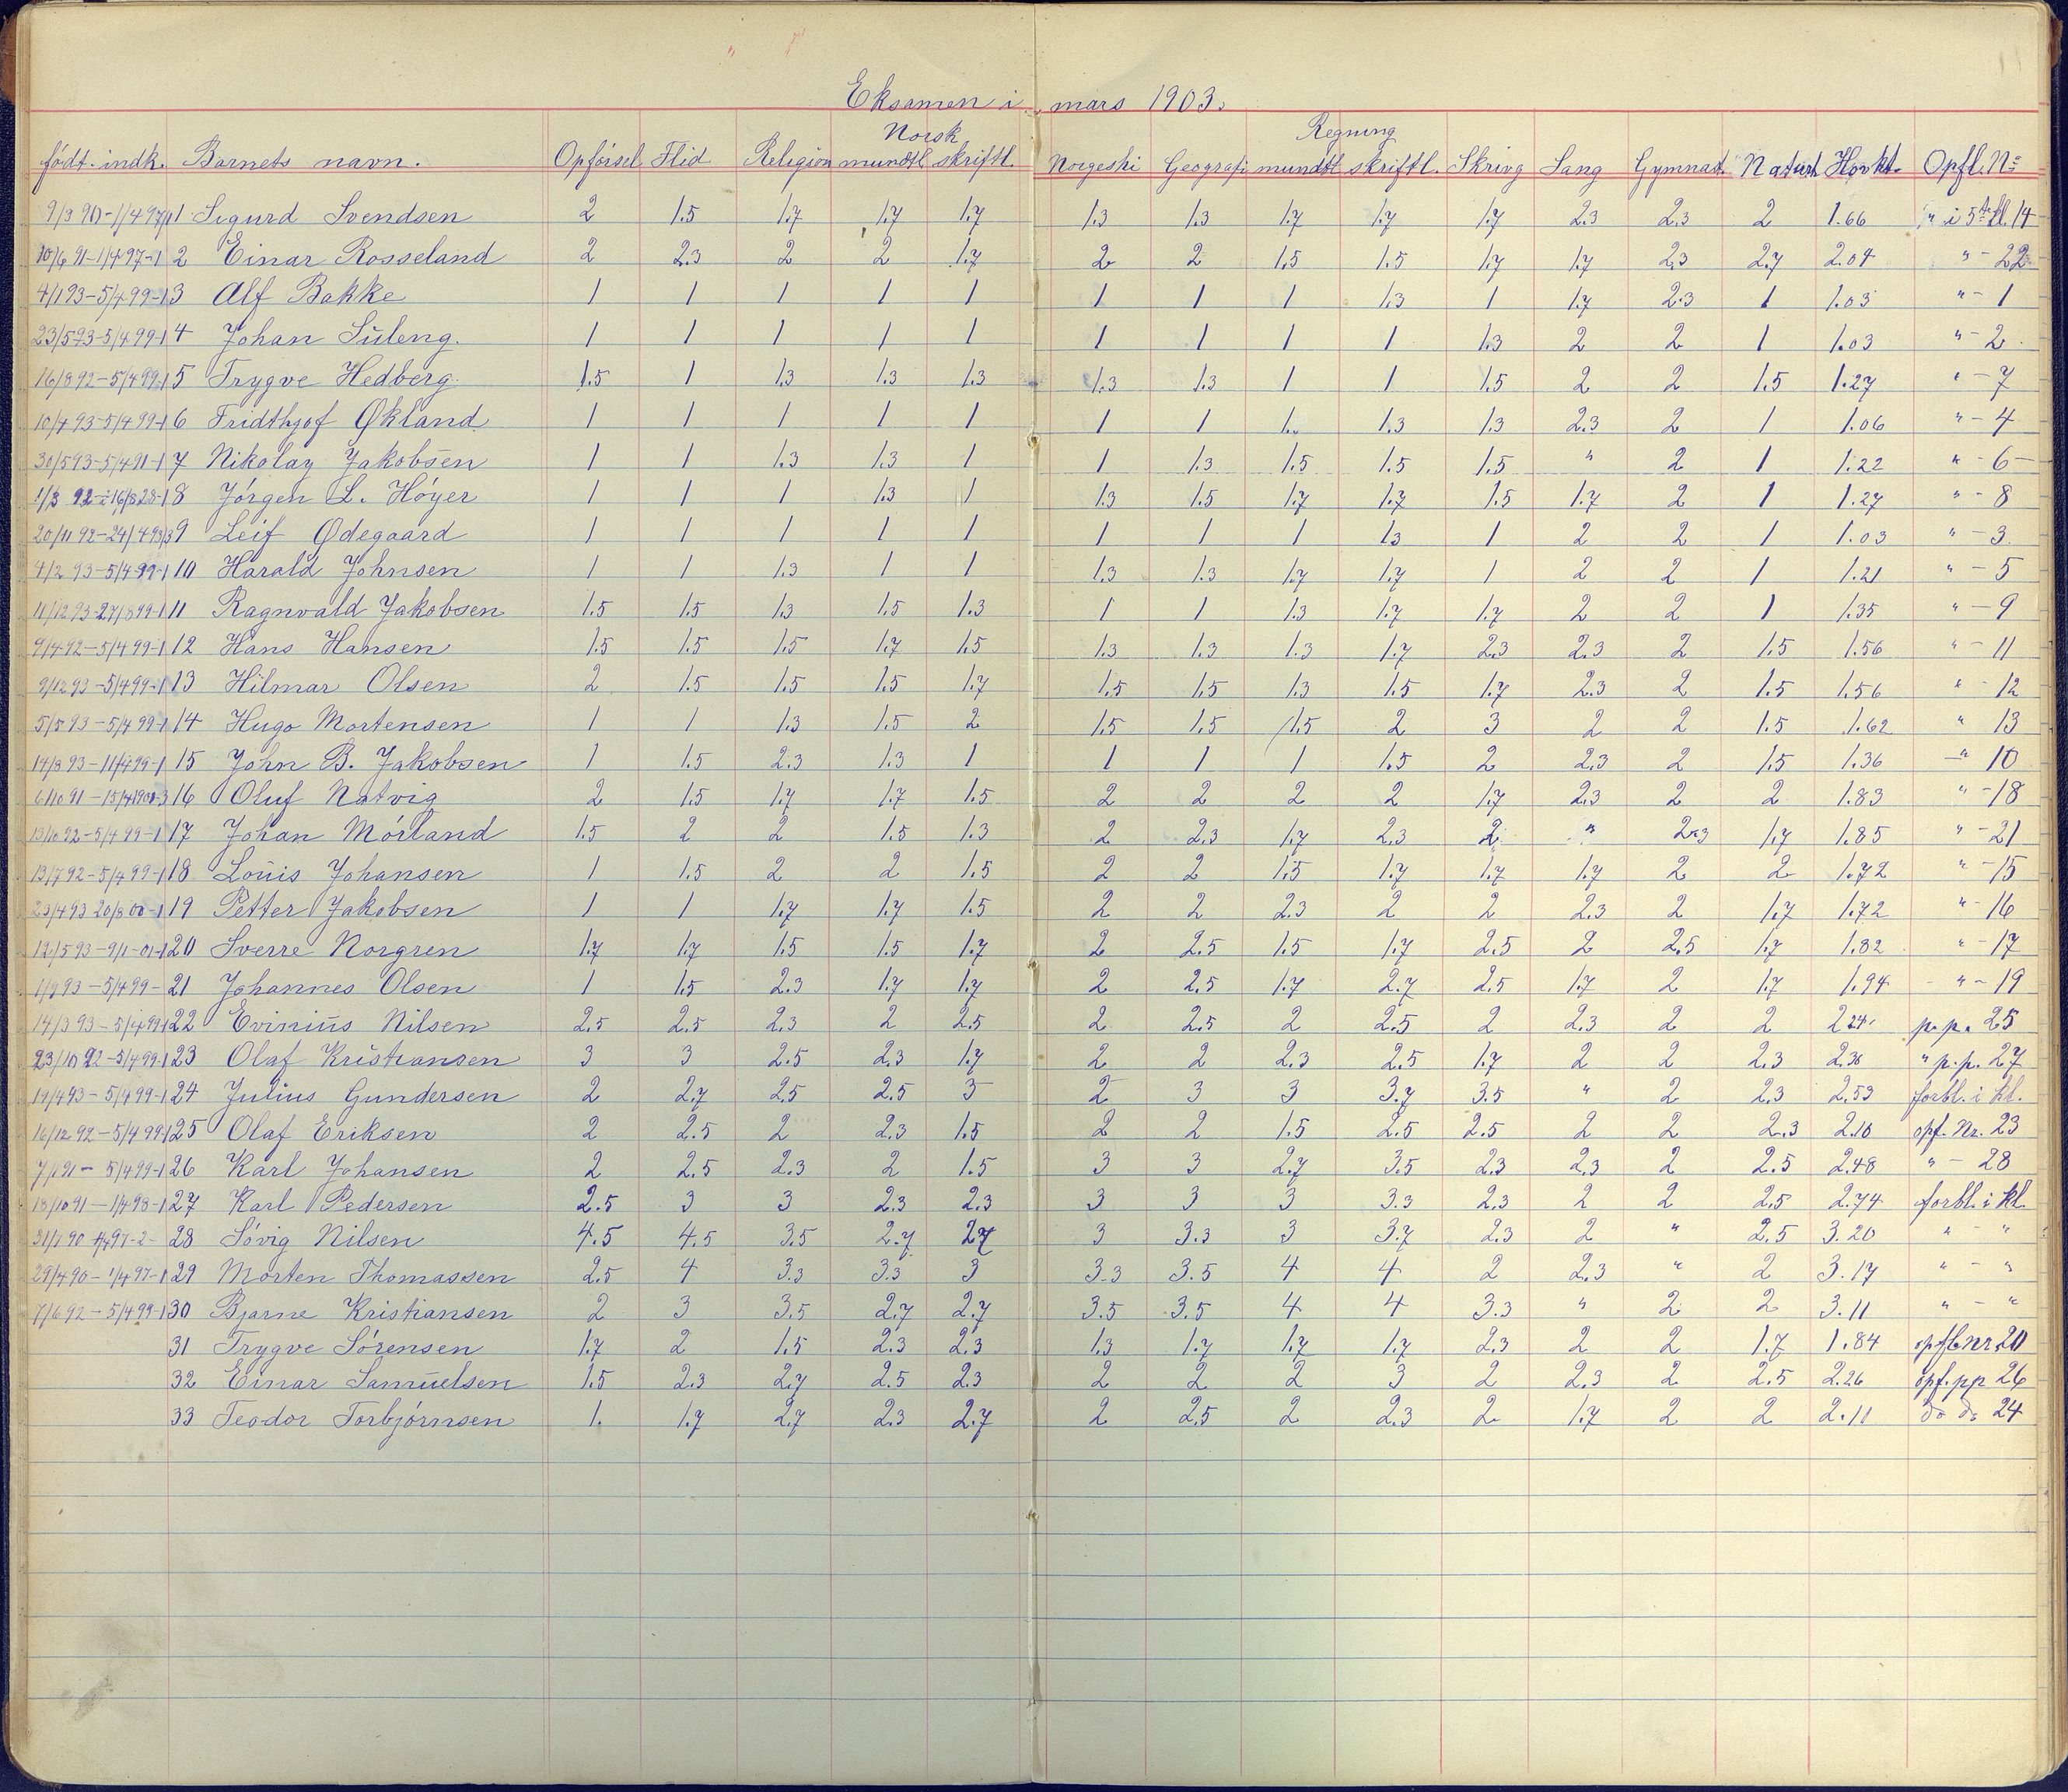 Eksamen i mars 1903.
Norsk Regning
født. indk. Barnets navn. Opførsel Flid Religion mundtl. skriftl. Norgeshi Geografi mundtl. skriftl. Skrivg Sang Gymnast. Naturh. Hovkt. Opfl. No
9/3 90-1/4 97 1 Sigurd Svendsen 2 1.5 1.7 1.7 1.7 1.3 1.3 1.7 1.7 1.7 2.3 2.3 2 1.66 i 5te kl. 14
10/6 91-1/4 97-1 2 Einar Rosseland 2 2.3 2 2 1.7 2 2 1.5 1.5 1.7 1.7 2.3 2.7 2.04 " - 22
4/1 93-5/4 99-1 3 Alf Bakke 1 1 1 1 1 1 1 1 1.3 1 1.7 2.3 1 1.03 " - 1
23/5 93-5/4 99-1 4 Johan Süleng. 1 1 1 1 1 1 1 1 1 1.3 2 2 1 1.03 " - 2
16/8 92-5/4 99-1 5 Trygve Hedberg. 1.5 1 1.3 1.3 1.3 1.3 1.3 1 1 1.5 2 2 1.5 1.27 " - 7
10/4 93-5/4 99-1 6 Fridthjof Økland 1 1 1 1 1 1 1 1. 1.3 1.3 2.3 2 1 1.06 " - 4
30/5 93-5/4 91-1 7 Nikolay Jakobsen 1 1 1.3 1.3 1 1 1.3 1.5 1.5 1.5 " 2 1 1.22 " - 6
1/3 92-16/8 28-1 8 Jørgen L. Høyer 1 1 1 1.3 1 1.3 1.5 1.7 1.7 1.5 1.7 2 1 1.27 " - 8
20/11 92-24/4 93/3 9 Leif Ødegaard 1 1 1 1 1 1 1 1 1.3 1 2 2 1 1.03 " - 3
4/2 93-5/4 99-1 10 Harald Johnsen 1 1 1.3 1 1 1.3 1.3 1.7 1.7 1 2 2 1 1.21 " - 5
11/12 93-27/8 99-1 11 Ragnvald Jakobsen 1.5 1.5 1.3 1.5 1.3 1 1 1.3 1.7 1.7 2 2 1 1.35 " - 9
9/4 92-5/4 99-1 12 Hans Hansen 1.5 1.5 1.5 1.7 1.5 1.3 1.3 1.3 1.7 2.3 2.3 2 1.5 1.56 " - 11
9/12 93-5/4 99-1 13 Hilmar Olsen 2 1.5 1.5 1.5 1.7 1.5 1.5 1.3 1.5 1.7 2.3 2 1.5 1.56 " - 12
5/5 93-5/4 99-1 14 Hugo Mortensen 1 1 1.3 1.5 2 1.5 1.5 1.5 2 3 2 2 1.5 1.62 " 13
14/8 93-11/4 99-1 15 John B. Jakobsen 1 1.5 2.3 1.3 1 1 1 1 1.5 2 2.3 2 1.5 1.36 " 10
6/10 91-15/4 1901-3 16 Oluf Natvig 2 1.5 1.7 1.7 1.5 2 2 2 2 1.7 2.3 2 2 1.83 " - 18
13/10 92-5/4 99-1 17 Johan Mørland 1.5 2 2 1.5 1.3 2 2.3 1.7 2.3 2 " 2.3 1.7 1.85 " - 21
13/7 92-5/4 99-1 18 Loüis Johansen 1 1.5 2 2 1.5 2 2 1.5 1.7 1.7 1.7 2 2 1.72 " - 15
23/4 93 20/8 00-1 19 Petter Jakobsen 1 1 1.7 1.7 1.5 2 2 2.3 2 2 2.3 2 1.7 1.72 " - 16
12/5 93-9/1-01-1 20 Sverre Norgren 1.7 1.7 1.5 1.5 1.7 2 2.5 1.5 1.7 2.5 2 2.5 1.7 1.82 " - 17
1/9 93-5/4 99- 21 Johannes Olsen 1 1.5 2.3 1.7 1.7 2 2.5 1.7 2.7 2.5 1.7 2 1.7 1.94 " - 19
14/3 93-5/4 99-1 22 Eviniüs Nilsen 2.5 2.5 2.3 2 2.5 2 2.5 2 2.5 2 2.3 2 2 2.24 p.p. 25
23/10 92-5/4 99-1 23 Olaf Kristiansen 3 3 2.5 2.3 1.7 2 2 2.3 2.5 1.7 2 2 2.3 2.36 " p.p. 27
19/4 93-5/4 99-1 24 Julius Gundersen 2 2.7 2.5 2.5 3 2 3 3 3.7 3.5 " 2 2.3 2.53 forbl. i kl.
16/12 92-5/4 99-1 25 Olaf Eriksen 2 2.5 2 2.3 1.5 2 2 1.5 2.5 2.5 2 2 2.3 2.10 opf. Nr. 23
7/1 91-5/4 99-1 26 Karl Johansen 2 2.5 2.3 2 1.5 3 3 2.7 3.5 2.3 2.3 2 2.5 2.48 " - 28
18/10 91-1/4 98-1 27 Karl Pedersen 2.5 3 3 2.3 2.3 3 3 3 3.3 2.3 2 2 2.5 2.74 forbl. i kl.
31/7 90 1/4 97-2- 28 Søvig Nilsen 4.5 4.5 3.5 2.7 2.7 3 3.3 3 3.7 2.3 2 " 2.5 3.20 " - "
29/4 90-1/4 97-1 29 Morten Thomassen 2.5 4 3.3 3.3 3 3.3 3.5 4 4 2 2.3 " 2 3.17 " - "
7/6 92-5/4 99-1 30 Bjarne Kristiansen 2 3 3.5 2.7 2.7 3.5 3.5 4 4 3.3 " 2 2 3.11 " - "
31 Trygve Sørensen 1.7 2 1.5 2.3 2.3 1.3 1.7 1.7 1.7 2.3 2 2 1.7 1.84 opfl. nr. 20
32 Einar Samüelsen 1.5 2.3 2.7 2.5 2.3 2 2 2 3 2 2.3 2 2.5 2.26 opf. pp 26
33 Teodor Torbjørnsen 1. 1.7 2.7 2.3 2.7 2 2.5 2 2.3 2 1.7 2 2 2.11 do do 24